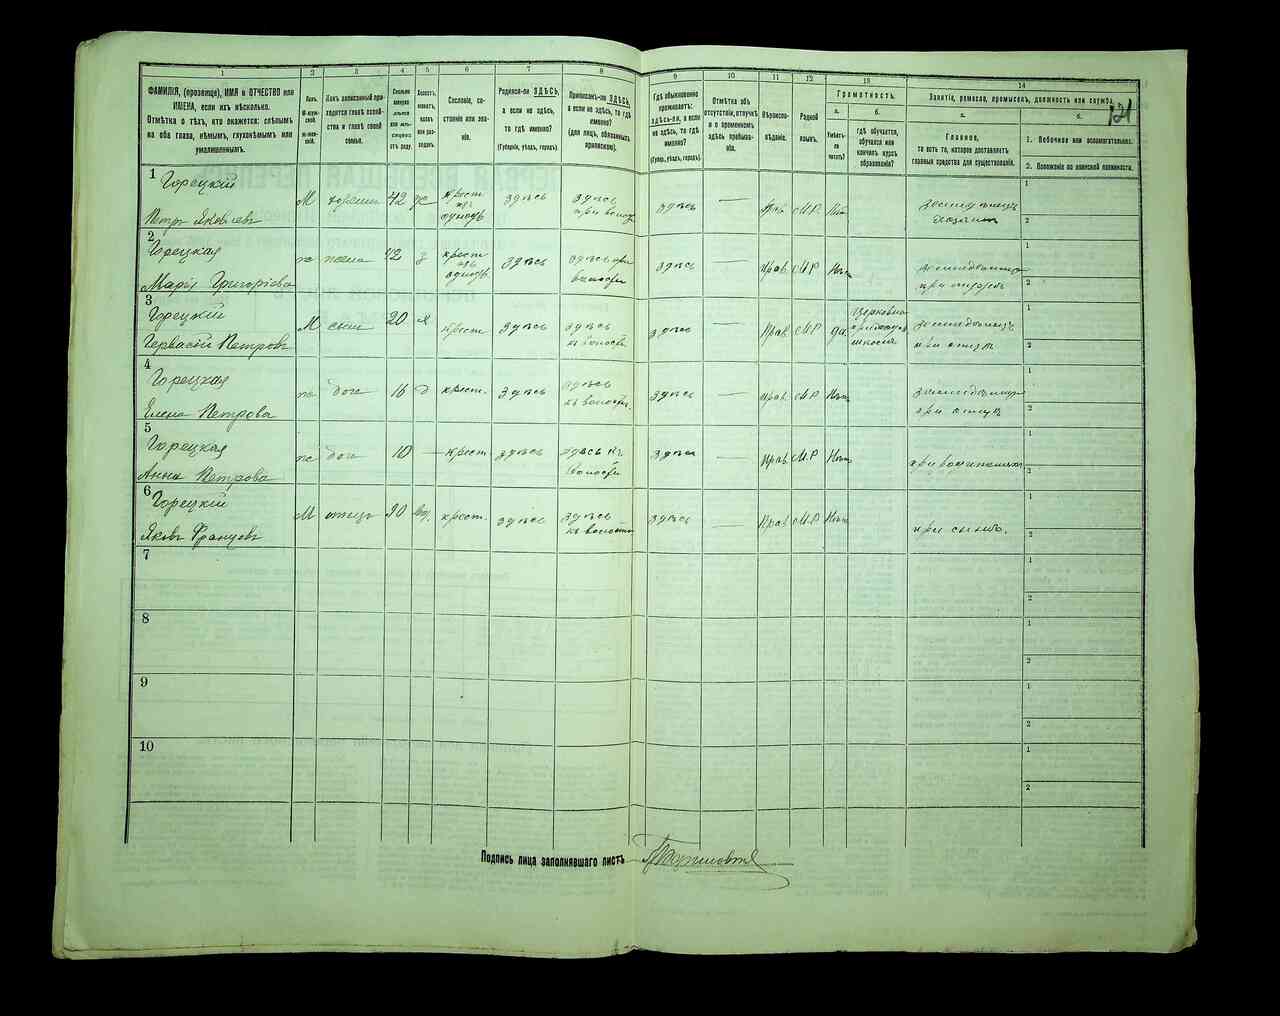 121
1 2 3 4 5 6 7 8 9 10 11 12 13 14
ФАМИЛІЯ, (прозвище), ИМЯ и ОТЧЕСТВО или ИМЕНА, если ихъ нѣсколько.
Отмѣтка о тѣхъ, кто окажется: слѣпымъ на оба глаза, нѣмымъ, глухонѣмымъ или умалишеннымъ.
Полъ.
М-муж-ской.
Ж-жен-ской.
Какъ записанный приходится главѣ хозяйства и главѣ своей семьи.
Сколько минуло лѣтъ или мѣсяцевъ отъ роду.
Холостъ, женатъ, вдовъ или разведенъ.
Сословіе, состояніе или званіе.
Родился-ли ЗДѢСЬ, а если не здѣсь, то гдѣ именно?
(Губернія, уѣздъ, городъ).
Приписанъ-ли ЗДѢСЬ, а если не здѣсь, то гдѣ именно?
(для лицъ, обязанныхъ припискою).
Гдѣ обыкновенно проживаетъ: здѣсь-ли, а если не здѣсь, то гдѣ именно?
(Губер., уѣздъ, городъ).
Отмѣтка объ отсутствіи, отлучкѣ и о временномъ здѣсь пребываніи.
Вѣроисповѣданіе.
Родной языкъ.
Грамотность.
а.
Умѣетъ-ли читать?
б.
гдѣ обучается, обучался или кончилъ курсъ образованія?
Занятіе, ремесло, промыселъ, должность или служба.
а.
Главное,
то есть то, которое доставляетъ главныя средства для существованія.
б.
1. Побочное или вспомогательное.
2. Положеніе по воинской повинности.
1 Горецкій
Петръ Яковлевъ М хозяинъ 42 ж крест изъ однодв здѣсь здѣсь при волост здѣсь — Прав. М.Р. Нѣт хозяинъ 1 2
2 Горецкая
Марія Григоріева ж жена 42 з крест изъ однодв здѣсь здѣсь при волости здѣсь — Прав. М.Р. Нѣт при мужѣ 1 2
3 Горецкій
Гервасій Петровъ М сынъ 20 х крест здѣсь здѣсь къ волости здѣсь — Прав. М.Р. да школа при отцѣ 1 2
4 Горецкая
Елена Петрова ж доч 16 д крест. здѣсь здѣсь къ волости здѣсь — Прав. М.Р. Нѣт при отцѣ 1 2
5 Горецкая
Анна Петрова ж доч 10 — крест здѣсь здѣсь къ волости здѣсь — Прав. М.Р Нѣт при родителяхъ 1 2
6 Горецкій
Яковъ Францовъ М отецъ 90 вд. крест. здѣсь здѣсь къ волости здѣсь — Прав. М.Р. Нѣт при сынѣ. 1 2
7 1 2
8 1 2
9 1 2
10 1 2
Подпись лица заполнявшаго листъ